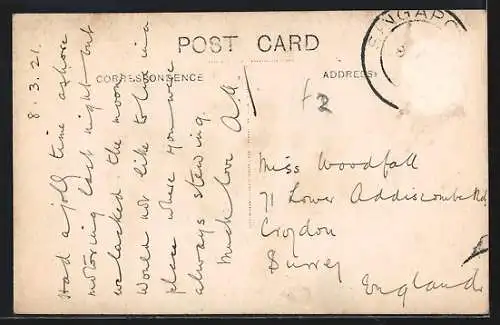 POST CARD
CORRESPONDENCE
ADDRESS
SINGAPO
8.3.21.
Had a jolly time ashore
motoring last night but
we lacked the moon
Would not like to live in a
place where you were
always stewing.
Much love A.G.
Miss Woodfall
71 Lower Addiscombe Rd
Croydon
Surrey
England